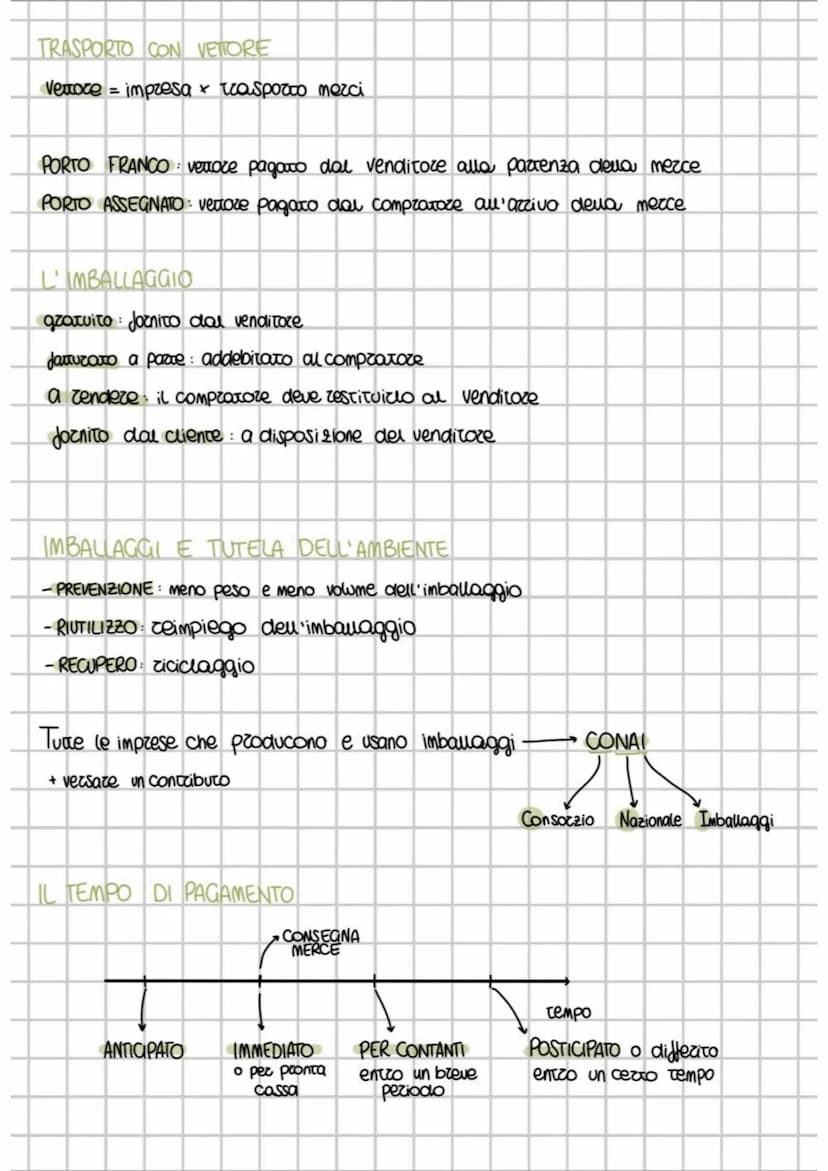 TRASPORTO CON VETTORE
vettore = impresa x trasporto merci
PORTO FRANCO: vettore pagato dal venditore alla partenza della merce
PORTO ASSEGNATO: vettore pagato dal compratore all'arrivo della merce
L'IMBALLAGGIO
gratuito: fornito dal venditore
fatturato a parte: addebitato al compratore
a rendere: il compratore deve restituirlo al venditore
fornito dal cliente: a disposizione del venditore
IMBALLAGGI E TUTELA DELL'AMBIENTE
- PREVENZIONE: meno peso e meno volume dell'imballaggio
- RIUTILIZZO: reimpiego dell'imballaggio
- RECUPERO: riciclaggio
Tutte le imprese che producono e usano imballaggi → CONAI
+ versare un contributo
Consorzio Nazionale Imballaggi
IL TEMPO DI PAGAMENTO
CONSEGNA
MERCE
tempo
ANTICIPATO IMMEDIATO PER CONTANTI POSTICIPATO o differito
o per pronta entro un breve entro un certo tempo
cassa periodo